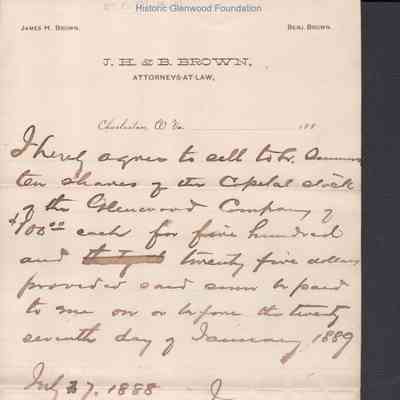 Historic Glenwood Foundation
JAMES H. BROWN.
BENJ. BROWN.
J. H. & B. BROWN,
ATTORNEYS-AT-LAW,
Charleston, W. Va. 188
I hereby agree to sell to
ten shares of the Capital stock
of the Glenwood Company of
$100.00 each for five hundred
and twenty five dollars
provided said sum be paid
to me on or before the twenty
seventh day of January 1889
July 27, 1888